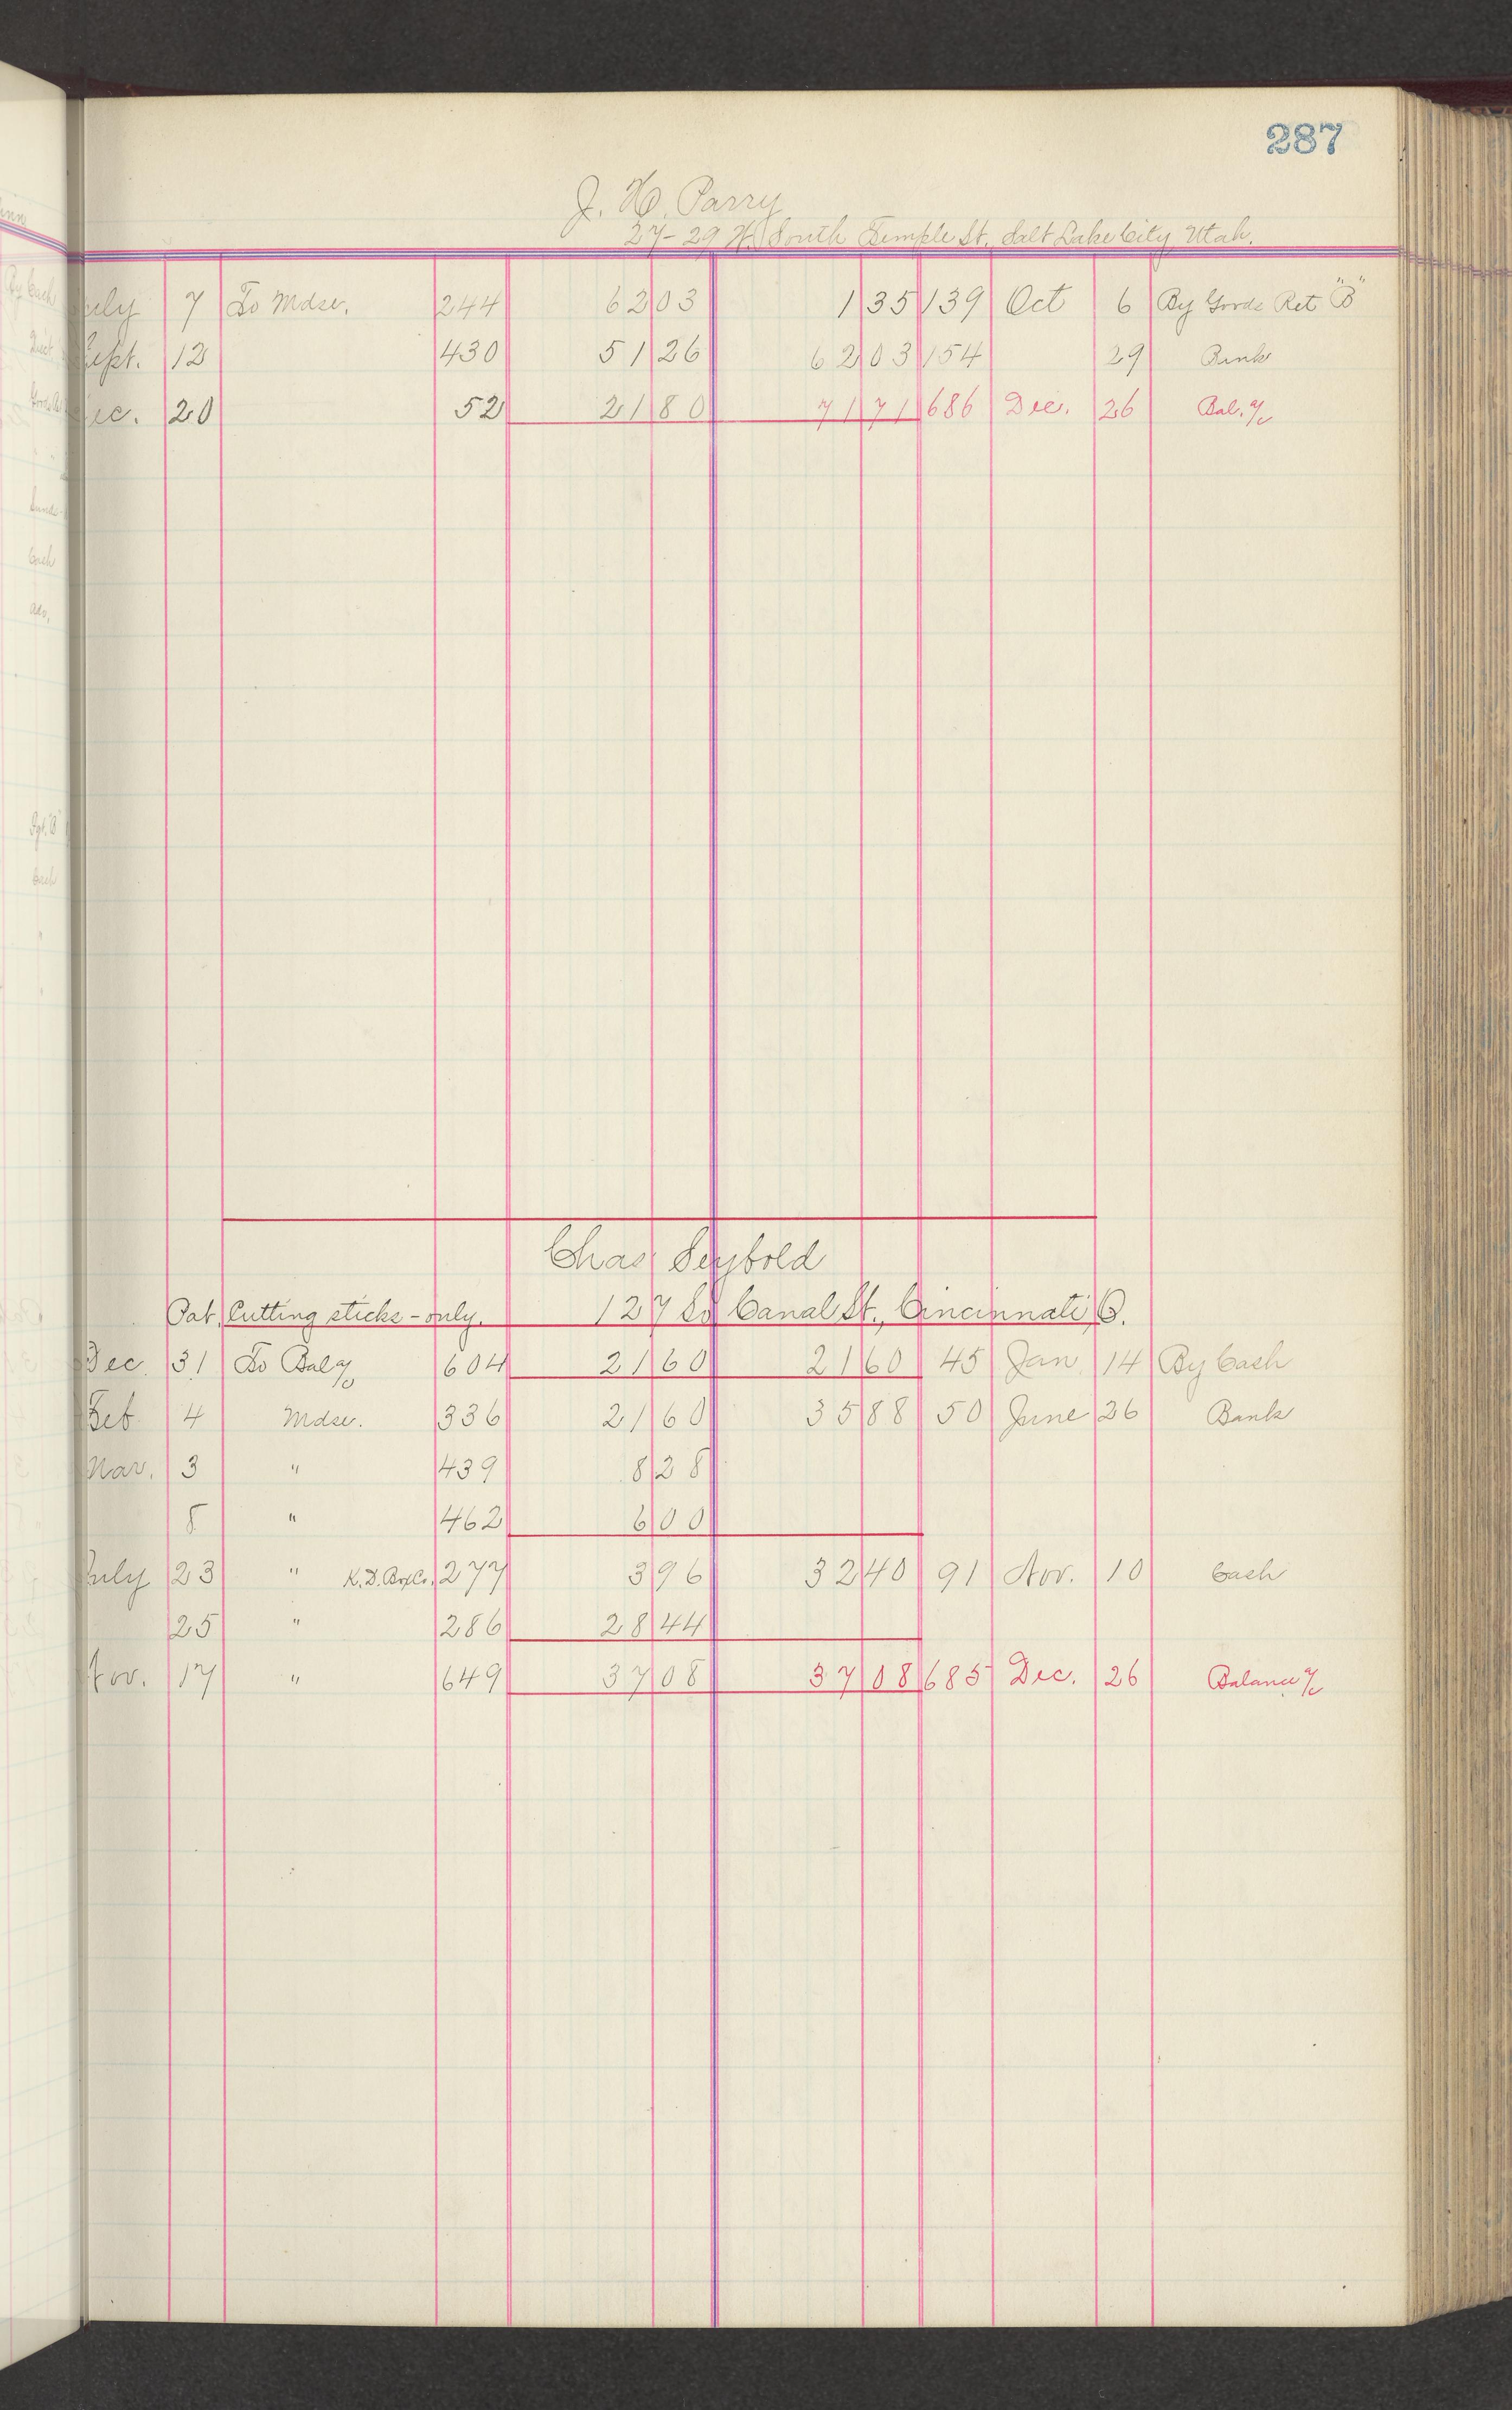 287
J. H. Parry
27-29 W. South Temple St. Salt Lake City Utah.
July 7 To Mdse. 244 62 03 1 35 139 Oct 6 By Goods Ret "B"
Sept. 12 430 51 26 62 03 154 29 Bank
Dec. 20 52 21 80 71 71 686 Dec. 26 Bal. a/c
Chas Seybold
Pat. Cutting sticks - only. 127 So Canal St., Cincinnati O.
Dec. 31 To Bal a/c 604 21 60 21 60 45 Jan 14 By Cash
Feb. 4 Mdse. 336 21 60 35 88 50 June 26 Bank
Mar. 3 " 439 8 28
8 " 462 6 00
July 23 " K.D. Box Co. 277 3 96 32 40 91 Nov. 10 Cash
25 " 286 28 44
Nov. 17 " 649 37 08 37 08 685 Dec. 26 Balance a/c